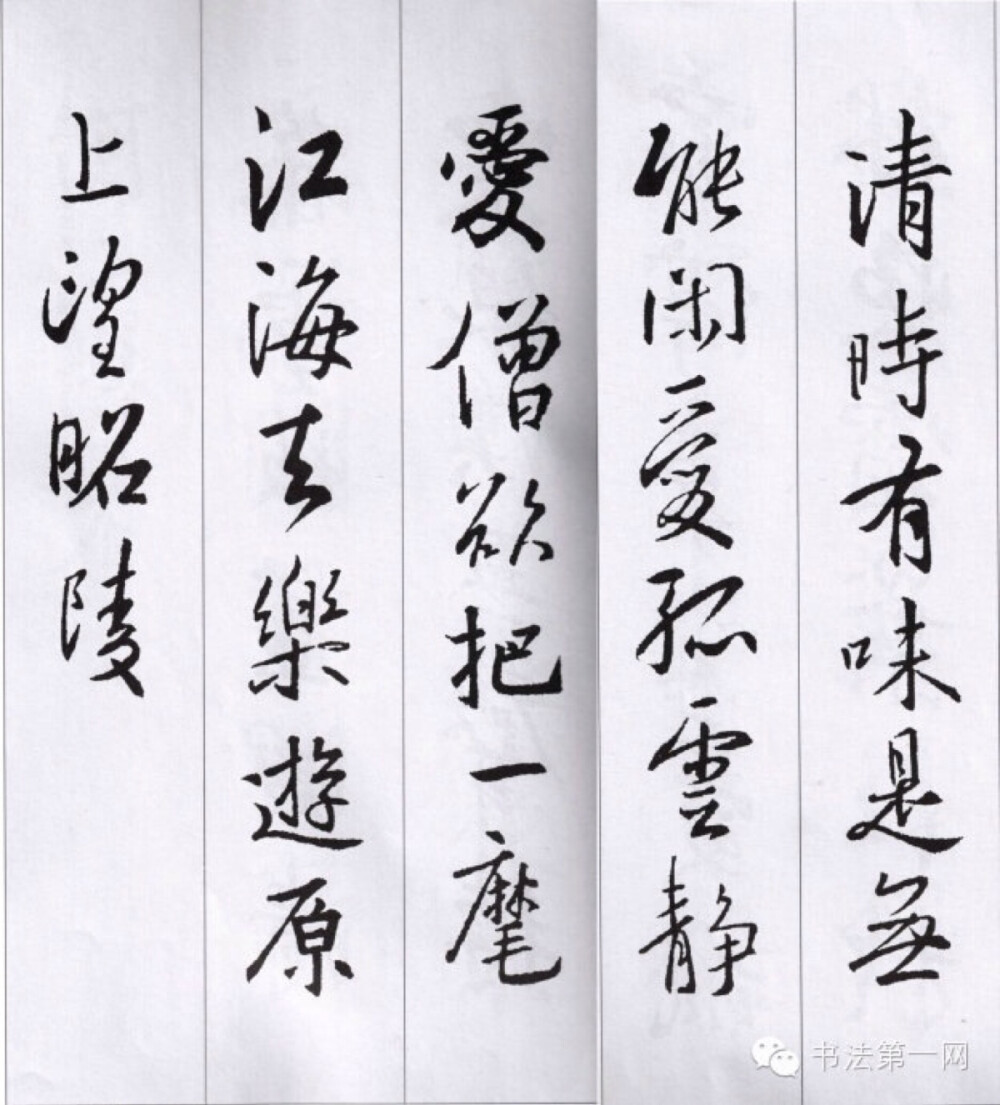 清時有味是無
能閑愛孤雲靜
愛僧欲把一麾
江海去樂遊原
上望昭陵
书法第一网